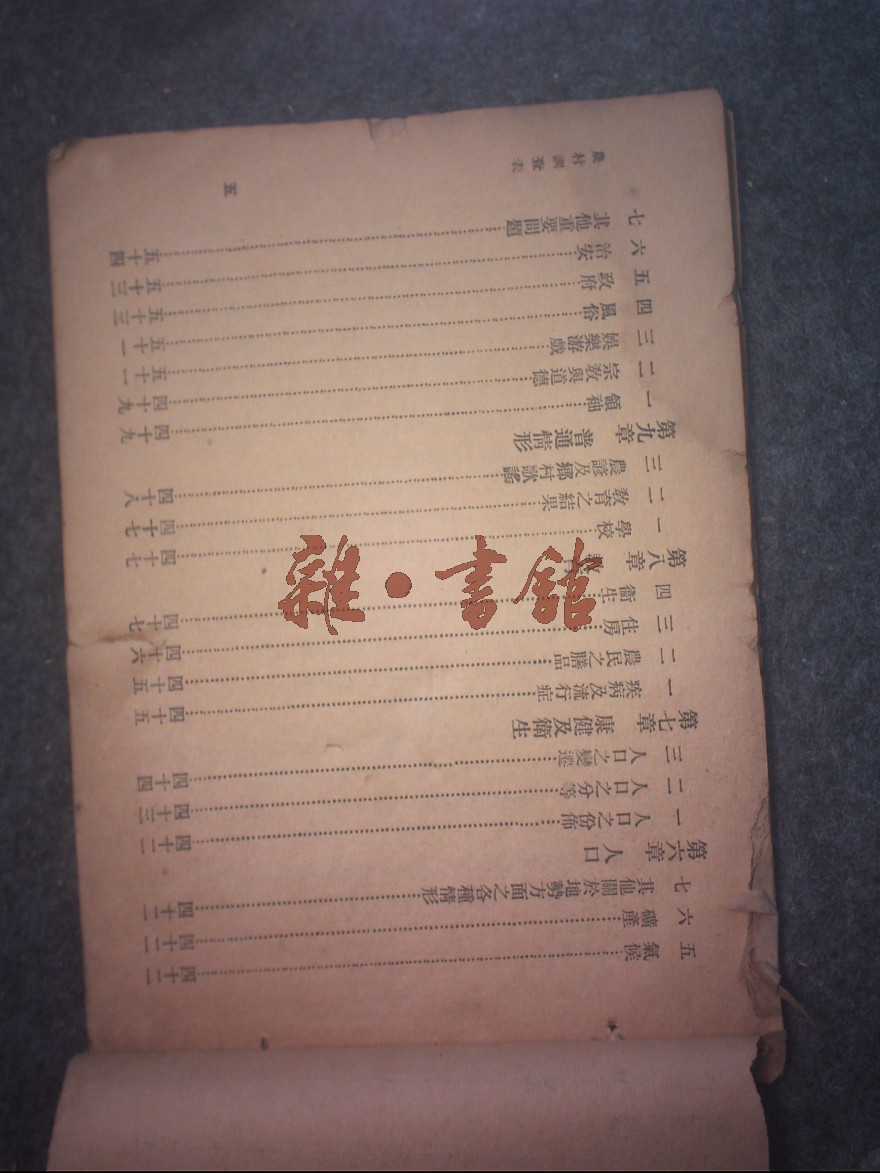 農村調查表
五 氣候 四十二
六 礦產 四十二
七 其他關於地勢方面之各種情形 四十二
第六章 人口
一 人口之份佈 四十二
二 人口之分等 四十三
三 人口之變遷 四十四
第七章 康健及衛生
一 疾病及流行症 四十五
二 農民之膳品 四十五
三 住房 四十六
四 衛生 四十七
第八章 教育
一 學校 四十七
二 教育之結果 四十七
三 農諺及鄉村歌謠 四十八
第九章 普通情形
一 領袖 四十九
二 宗教與道德 四十九
三 娛樂游戲 五十一
四 風俗 五十一
五 政府 五十三
六 治安 五十三
七 其他重要問題 五十四
五
雜·書館